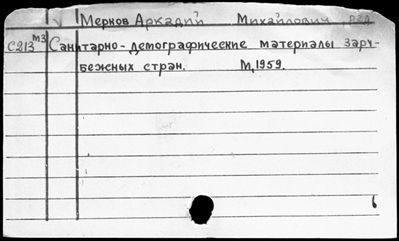 V Мерков Аркадий Михайлович, ред.
С213 м3 Санитарно-демографические материалы зару-
бежных стран. М, 1959.
6